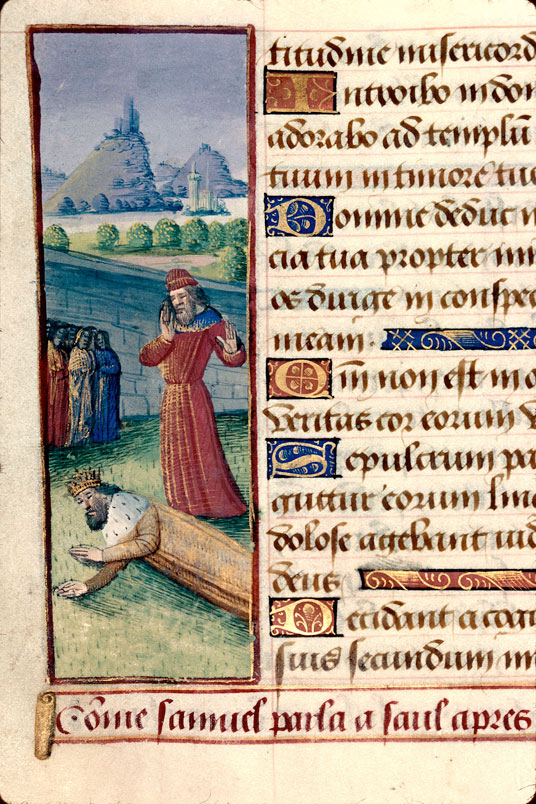 titudine misericord
Introibo in dom
adorabo ad templū
tuum in timore tuo
Domine deduc m
cia tua propter inim
os dirige in conspec
meam
Qm̄ non est in o
veritas cor eorum v
Sepulcrum pa
guttur eorum lin
dolose agebant iud
deus
Decidant a cogit
suis secundum m
Cōme samuel parla a saul apres